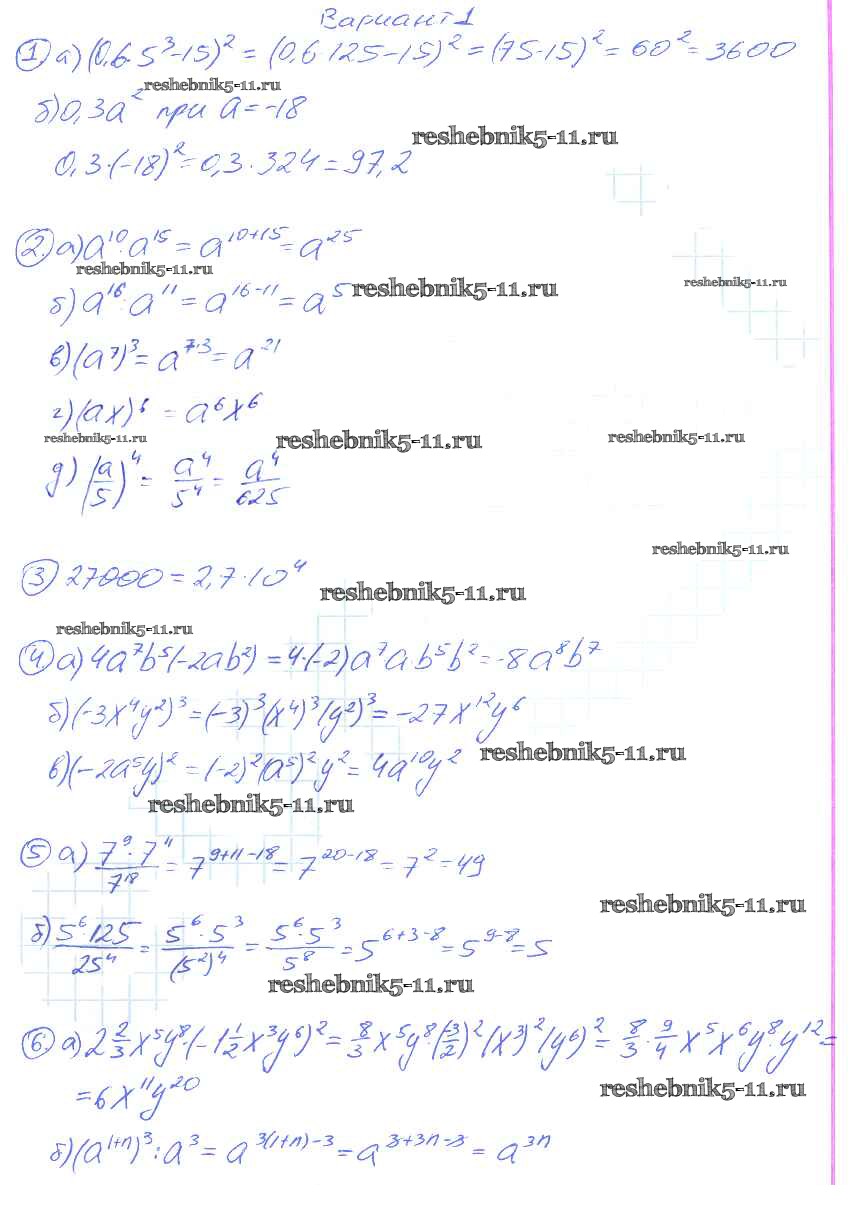 Вариант 1
① а) (0,6·5³-15)² = (0,6 125-15)² = (75-15)² = 60² = 3600
reshebnik5-11.ru
б) 0,3a² при a=-18
reshebnik5-11.ru
0,3·(-18)² = 0,3·324 = 97,2
② а) a¹⁰·a¹⁵ = a¹⁰⁺¹⁵ = a²⁵
reshebnik5-11.ru
б) a¹⁶:a¹¹ = a¹⁶⁻¹¹ = a⁵
reshebnik5-11.ru
reshebnik5-11.ru
в) (a⁷)³ = a⁷·³ = a²¹
г) (ax)⁶ = a⁶x⁶
reshebnik5-11.ru
reshebnik5-11.ru
reshebnik5-11.ru
д) (a/5)⁴ = a⁴/5⁴ = a⁴/625
reshebnik5-11.ru
③ 27000 = 2,7·10⁴
reshebnik5-11.ru
reshebnik5-11.ru
④ а) 4a⁷b⁵(-2ab²) = 4·(-2)a⁷ab⁵b² = -8a⁸b⁷
б) (-3x⁴y²)³ = (-3)³(x⁴)³(y²)³ = -27x¹²y⁶
reshebnik5-11.ru
в) (-2a⁵y)² = (-2)²(a⁵)²y² = 4a¹⁰y²
reshebnik5-11.ru
⑤ а) 7⁹·7¹¹/7¹⁸ = 7⁹⁺¹¹⁻¹⁸ = 7²⁰⁻¹⁸ = 7² = 49
reshebnik5-11.ru
б) 5⁶·125/25⁴ = 5⁶·5³/(5²)⁴ = 5⁶·5³/5⁸ = 5⁶⁺³⁻⁸ = 5⁹⁻⁸ = 5
reshebnik5-11.ru
⑥ а) 2 2/3x⁵y⁸(-1 1/2x³y⁶)² = 8/3x⁵y⁸·(-3/2)²(x³)²(y⁶)² = 8/3·9/4 x⁵x⁶y⁸y¹² =
reshebnik5-11.ru
= 6x¹¹y²⁰
б) (a¹⁺ⁿ)³:a³ = a³⁽¹⁺ⁿ⁾⁻³ = a³⁺³ⁿ⁻³ = a³ⁿ